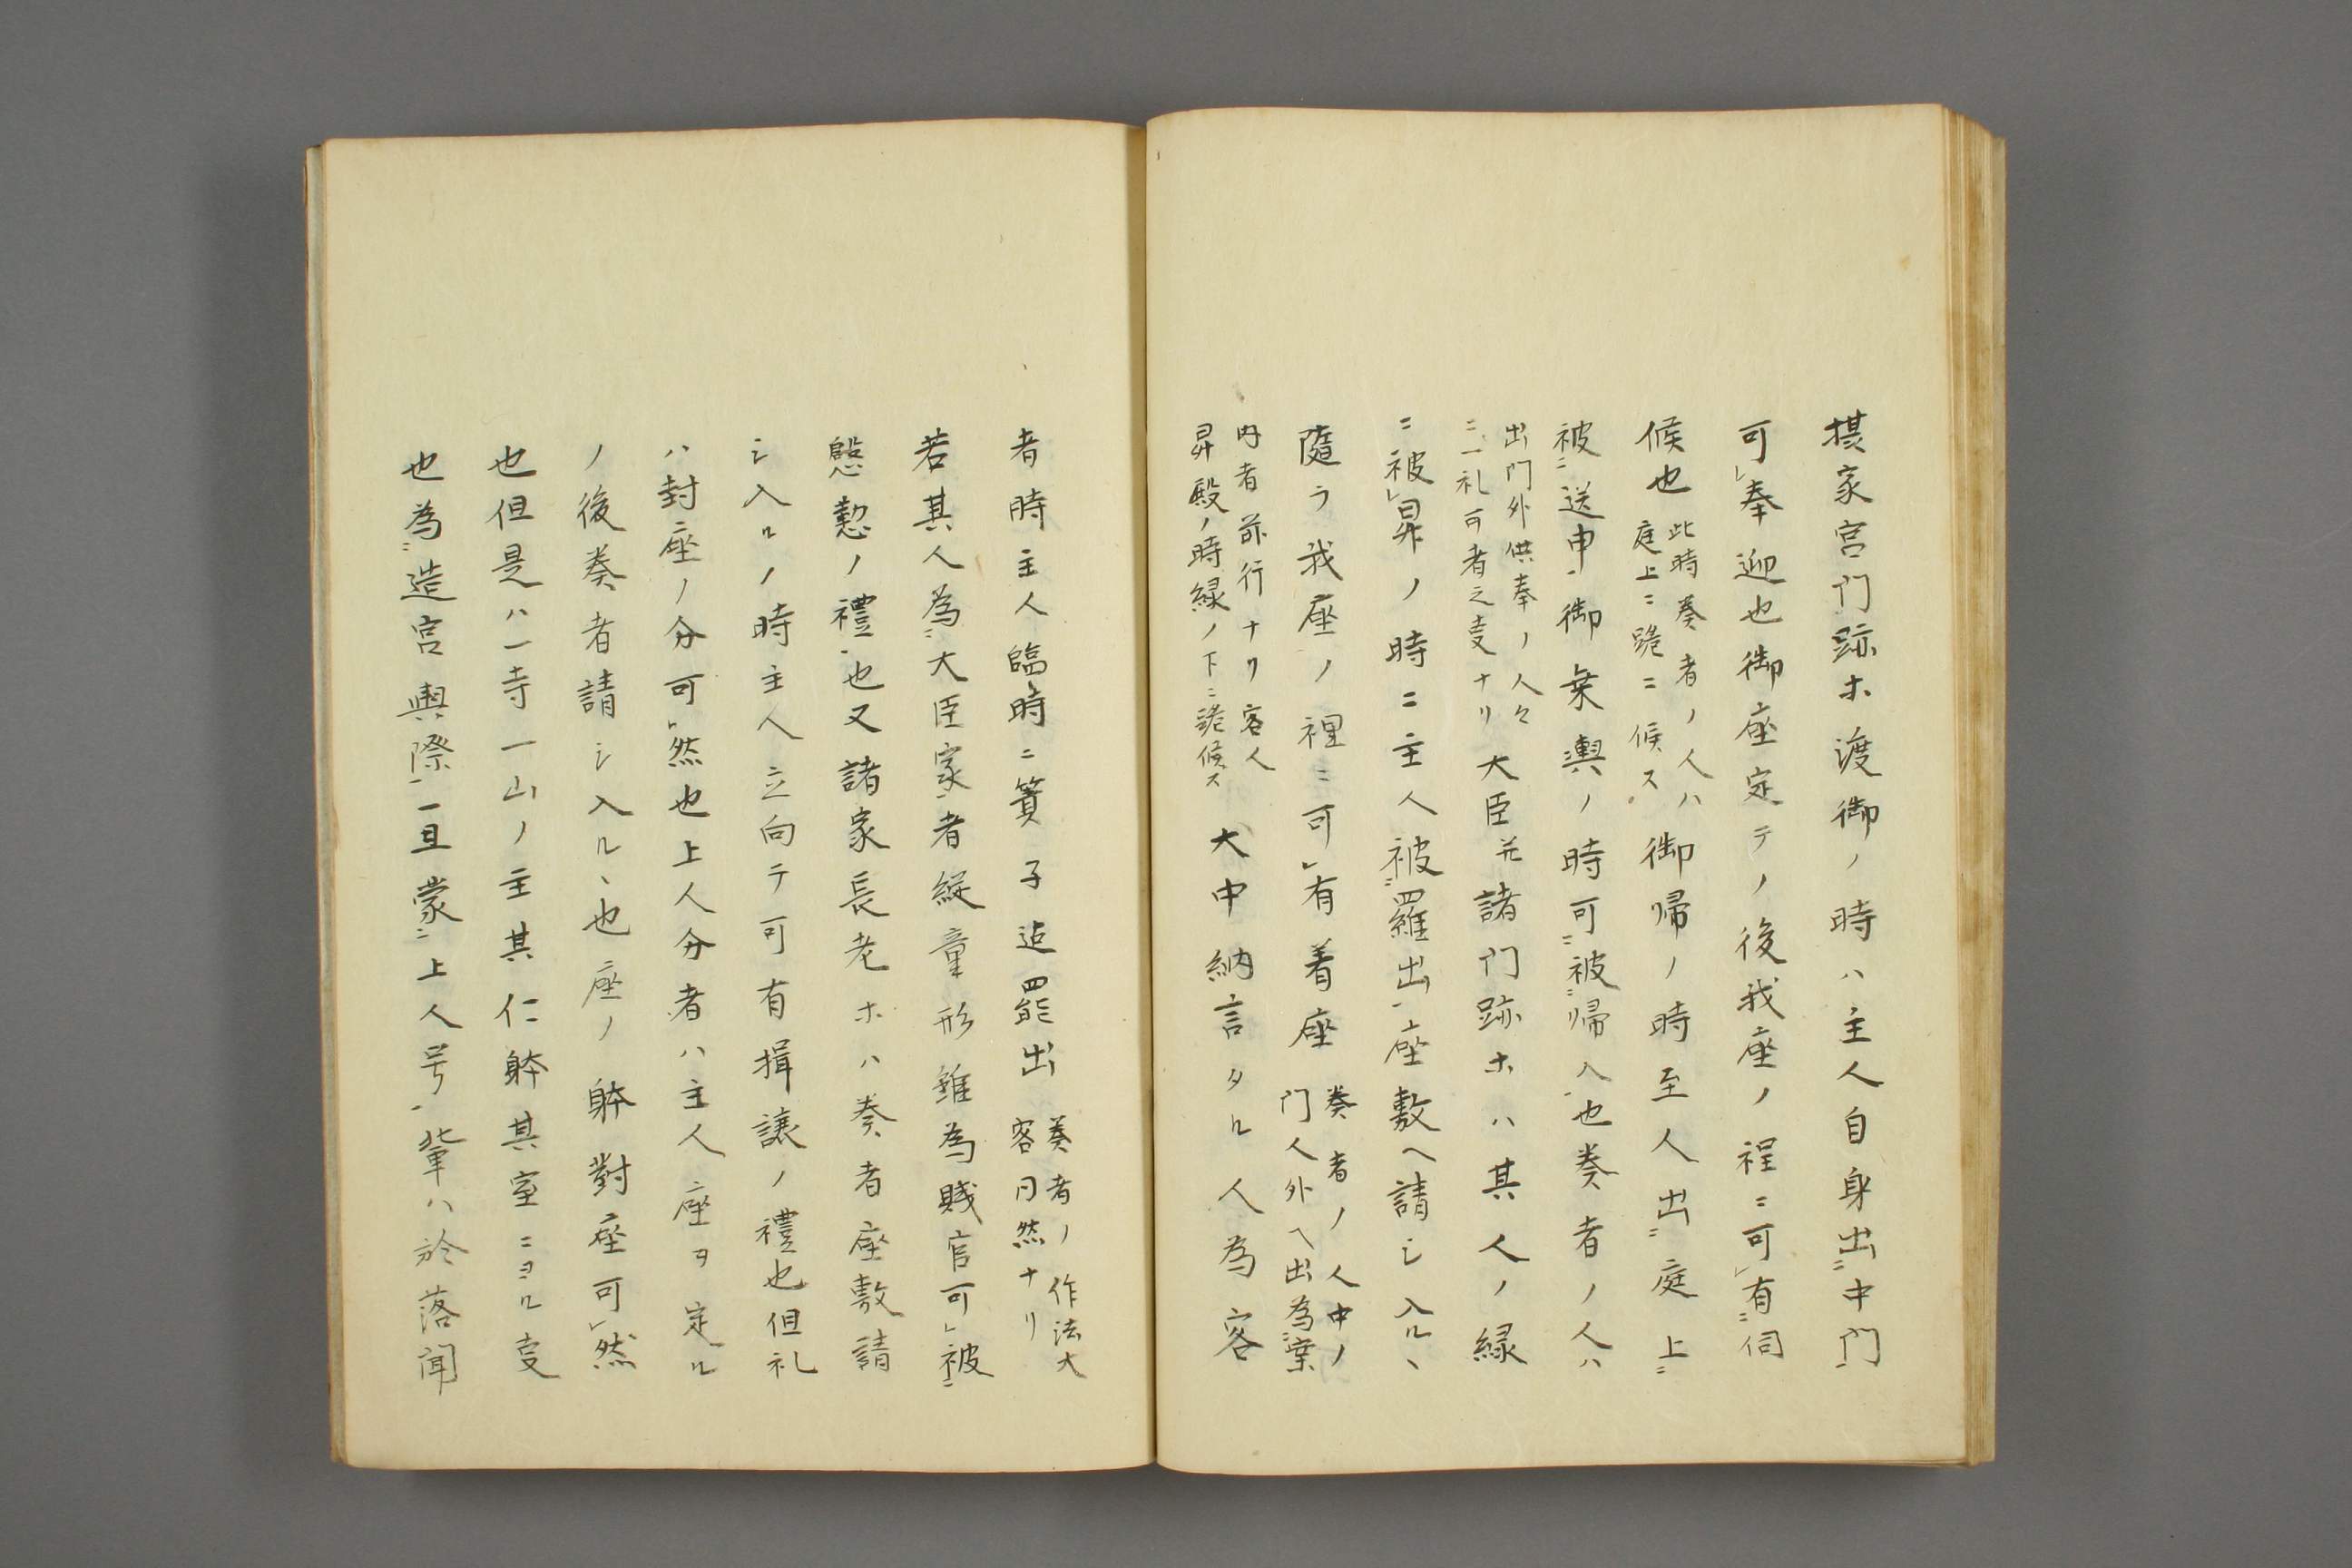 摂家宮門跡ホ渡御ノ時ハ主人自身出ニ中門一
可レ奉迎也御座定テノ後我座ノ程ニ可レ有ニ伺
候也此時奏者ノ人ハ庭上ニ跪ニ候ス御帰ノ時至人出ニ庭上ニ
被ニ送申一御乗輿ノ時可ニ被ニ帰入一也奏者ノ人ハ
出門外供奉ノ人々ニ一礼可者之叓ナリ大臣并諸門跡ホハ其人ノ縁
ニ被レ昇ノ時ニ主人被ニ羅出一座敷ヘ請シ入ルヽ
隨ラ我座ノ裡ニ可レ有着座奏者ノ人中ノ門人外ヘ出為ニ案
内者前行ナリ客人昇殿ノ時縁ノ下ニ跪候ス大中納言タル人為客
者時主人臨時ニ簀子迄罷出奏者ノ作法大客同然ナリ
若其人為ニ大臣家一者縦童形雖為賤官可レ被ニ
慇懃ノ禮一也又諸家長老ホハ奏者座敷請
シ入ルノ時主人立向テ可有揖譲ノ禮也但礼
ハ封座ノ分可レ然也上人分者ハ主人座ヲ定ル
ノ後奏者請シ入ルヽ也座ノ躰對座可レ然
也但是ハ一寺一山ノ主其仁躰其室ニヨル叓
也為ニ造宮輿際一一旦蒙ニ上人号一輩ハ於落聞